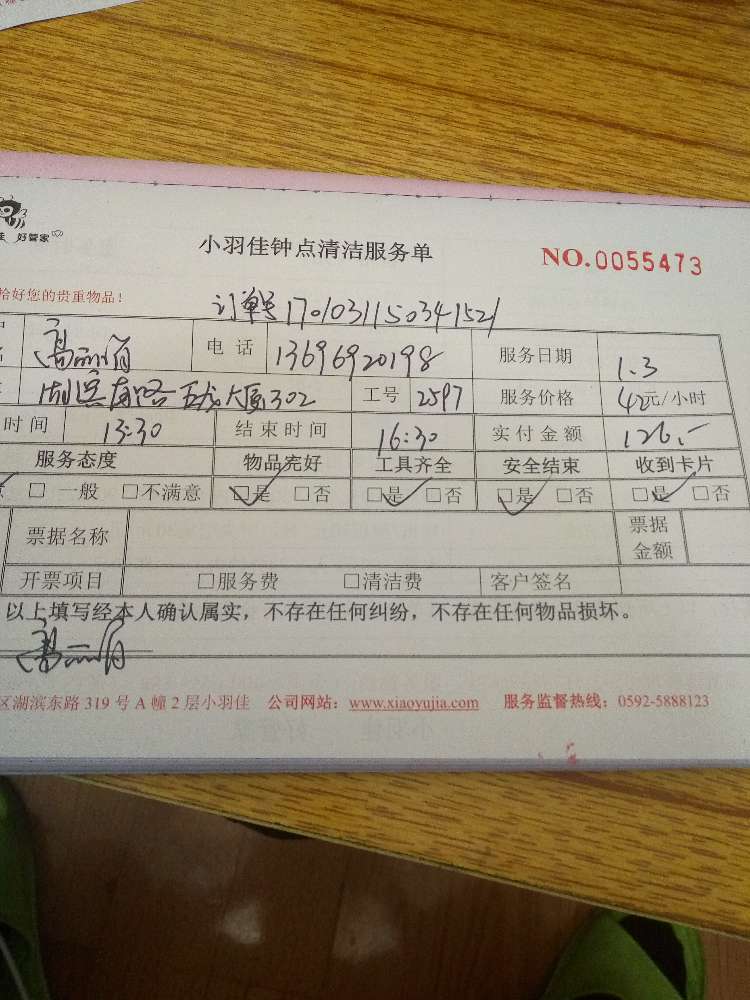 好管家
小羽佳钟点清洁服务单 NO.0055473
恰好您的贵重物品！ 订单号 1701031150341521
电话 13696920198 服务日期 1.3
湖滨南路 大厦302 工号 2597 服务价格 42元/小时
时间 13:30 结束时间 16:30 实付金额 126.-
服务态度 物品完好 工具齐全 安全结束 收到卡片
□一般 □不满意 □是 □否 □是 □否 □是 □否 □是 □否
票据名称 票据金额
开票项目 □服务费 □清洁费 客户签名
以上填写经本人确认属实，不存在任何纠纷，不存在任何物品损坏。
区湖滨东路 319 号 A 幢 2 层小羽佳 公司网站：www.xiaoyujia.com 服务监督热线：0592-5888123